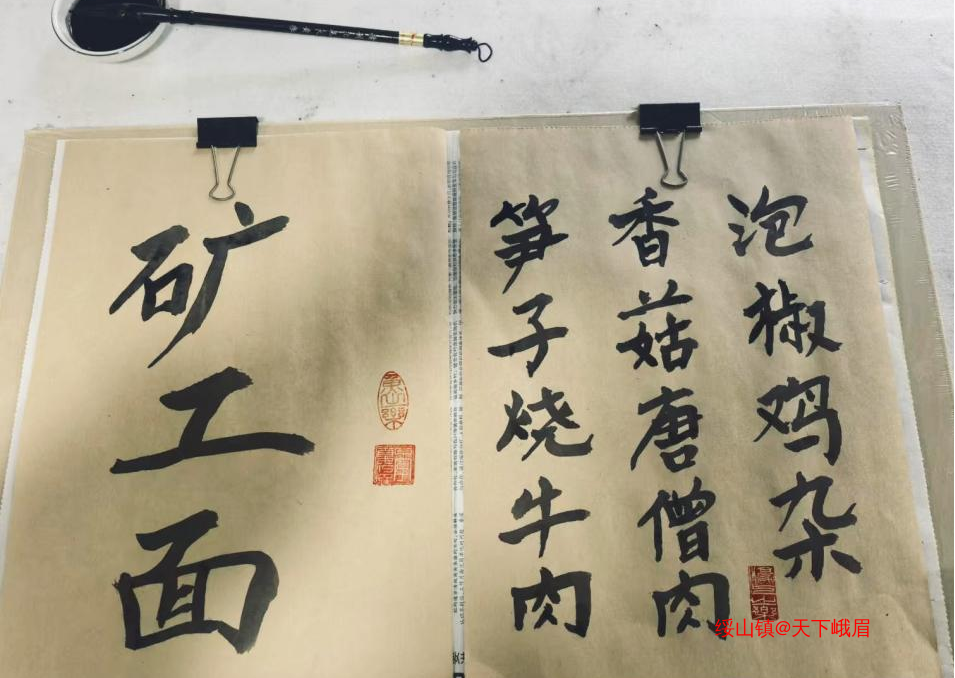 矿工面
泡椒鸡杂
香菇唐僧肉
笋子烧牛肉
绥山镇@天下峨眉